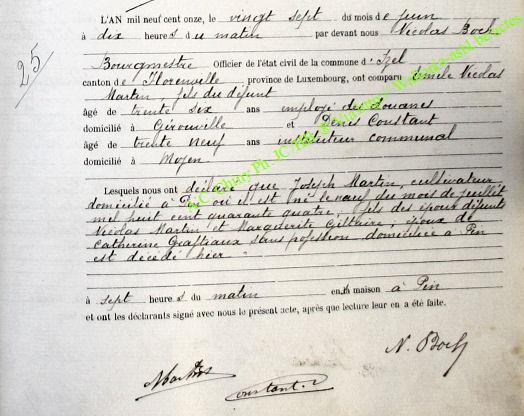 25
L'AN mil neuf cent onze, le vingt sept du mois de juin
à dix heures du matin par devant nous Nicolas Boch
Bourgmestre Officier de l'état civil de la commune d'Izel
canton de Florenville, province de Luxembourg, ont comparu Emile Nicolas
Martin fils du défunt
âgé de trente six ans employé des douanes
domicilié à Gérouville et Denis Constant
âgé de trente neuf ans instituteur communal
domicilié à Moyen
Lesquels nous ont déclaré que Joseph Martin, cultivateur
domicilié à Pin où il est né le neuf du mois de juillet
mil huit cent quarante quatre, fils des époux défunts
Nicolas Martin et Marguerite Gillaire, époux de
Catherine sans profession domiciliée à Pin
est décédé hier
à sept heures du matin en sa maison à Pin
et ont les déclarants signé avec nous le présent acte, après que lecture leur en a été faite.
N. Boch
Martin
Constant. D